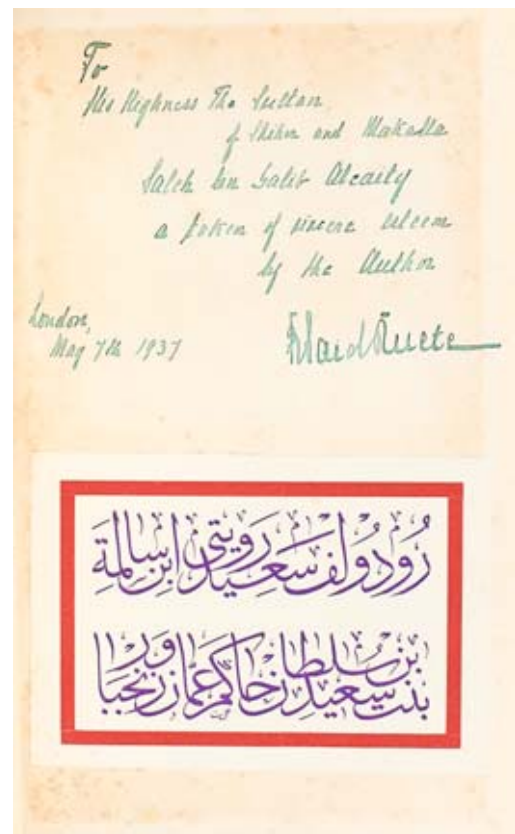 To
His Highness The Sultan
of Shiher and Makalla
Saleh bin Galib Alcaity
a token of sincere esteem
by the Author
London,
May 7th 1937
RSaid Ruete
رُودُولف سَعِيد رُويتي ابن سَالِمَة
بنت سَعِيد بن سُلطَان حَاكم عُمَان وزَنجبَار